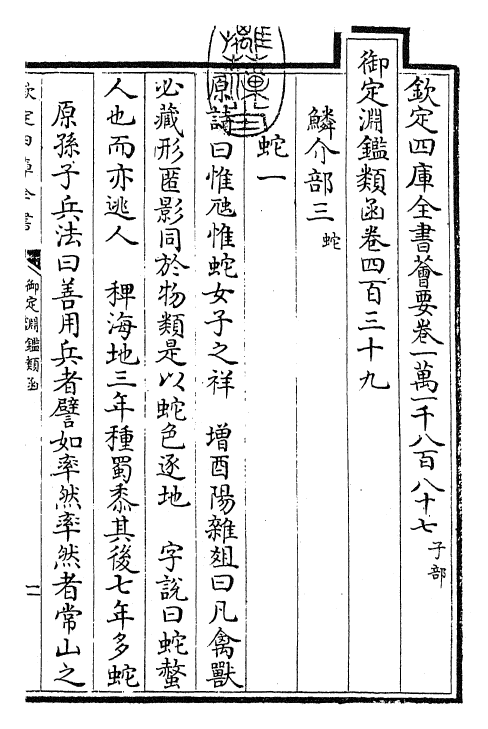 欽定四庫全書薈要卷一萬一千八百八十七 子部
御定淵鑑類函卷四百三十九
鱗介部三 蛇
蛇一
原詩曰惟虺惟蛇女子之祥 增酉陽雜俎曰凡禽獸
必藏形匿影同於物類是以蛇色逐地 字說曰蛇螫
人也而亦逃人 稗海地三年種蜀黍其後七年多蛇
原孫子兵法曰善用兵者譬如率然率然者常山之
欽定四庫全書
御定淵鑑類函
一